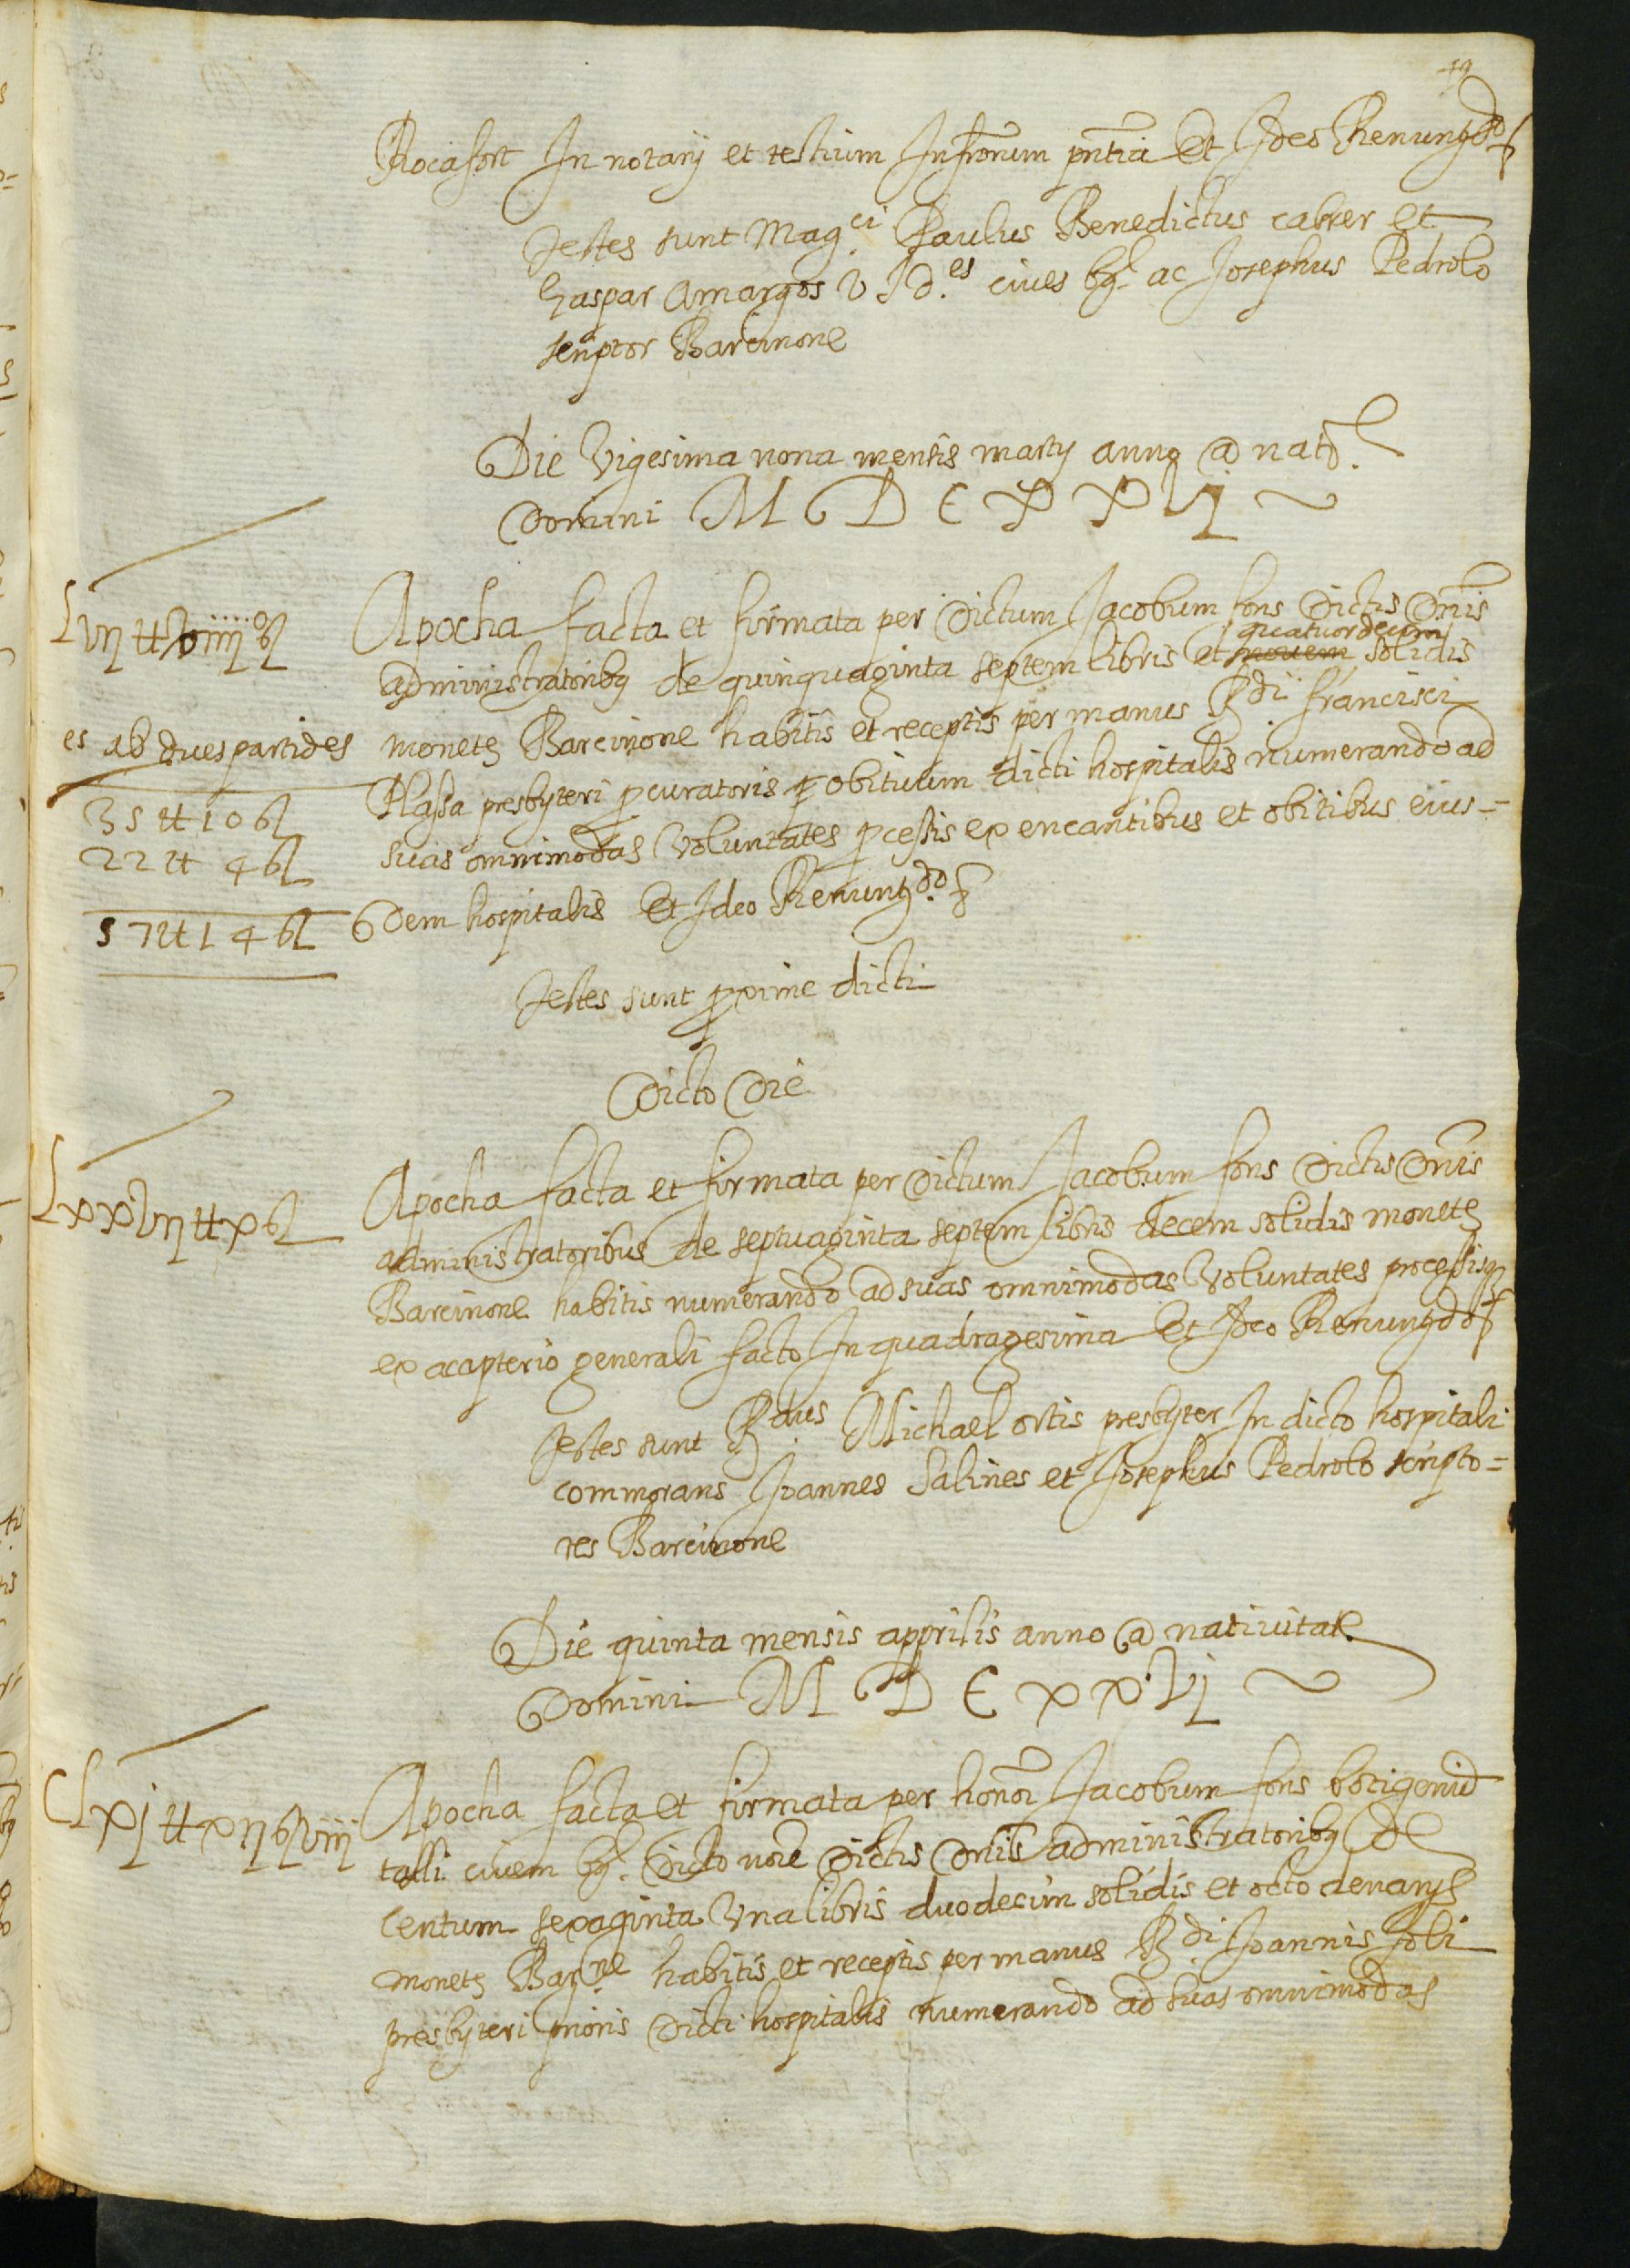 19
Rocafort In notarij et testium Infrõrum pñtia Et Ideo Renung.do &
Testes sunt Mag.ci Paulus Benedictus cabrer et
Gaspar Amargos V I D.es ciues bar. ac Josephus Pedrolo
scriptor Barcinone
Die Vigesima nona mensis martij anno @ natõ.
Domini M D C x x Vj
Lvij tt xiiij ß
Apocha facta et firmata per dictum Jacobum fons dictis Dñis
quatuordecim
administratoribq de quinquaginta septem libris et nouem solidis
es ab dues partides
monetę Barcinone habitis et receptis per manus R.di francisci
Plassa presbyteri pcuratoris p obituum dicti hospitalis numerando ad
35 tt 10 ß
suas omnimodas Voluntates pcessis ex encantibus et obitibus eius=
22 tt 4 ß
57 tt 14 ß
dem hospitalis Et Ideo Renung.do &
Testes sunt pxime dicti
Dicto Die
Lxxvij tt x ß
Apocha facta et firmata per dictum Jacobum fons dictis Dñis
administratoribus de septuaginta septem libris decem solidis monetę
Barcinone habitis numerando ad suas omnimodas Voluntates processisq
ex acapterio generali facto In quadragesima Et Ideo Renungdo &
Testes sunt R.dus Michael ortis presbyter In dicto hospitali
commorans Joannes Salines et Josephus Pedrolo scripto=
res Barcinone
Die quinta mensis apprilis anno @ natiuitate
Domini M D C x x Vj
CLxj tt xij ß viij
Apocha facta et firmata per honor Jacobum fons botigerium
talli ciuem bar. Dicto noīe Dictis Dñis administratoribq de
Centum sexaginta Vna libris duodecim solidis et octo denarijs
monetę Bar.ne habitis et receptis per manus R.di Joannis Soli
presbyteri prioris Dicti hospitalis numerando ad suas omnimodas